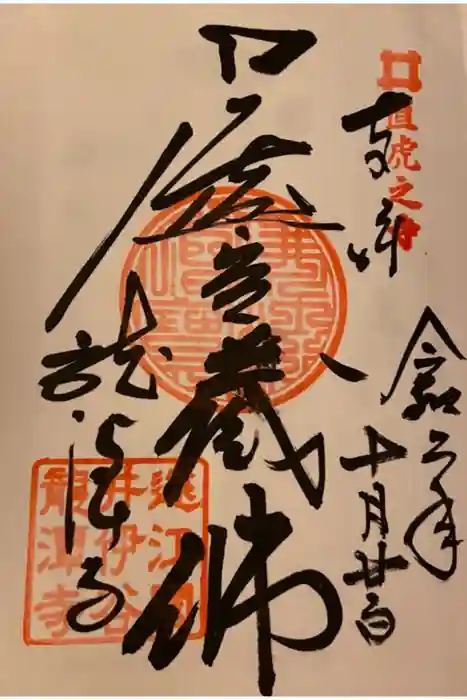 直虎之寺
奉拝
令和二年
十月廿一日
虚空蔵佛
龍潭寺
遠江國
井伊谷
龍潭寺